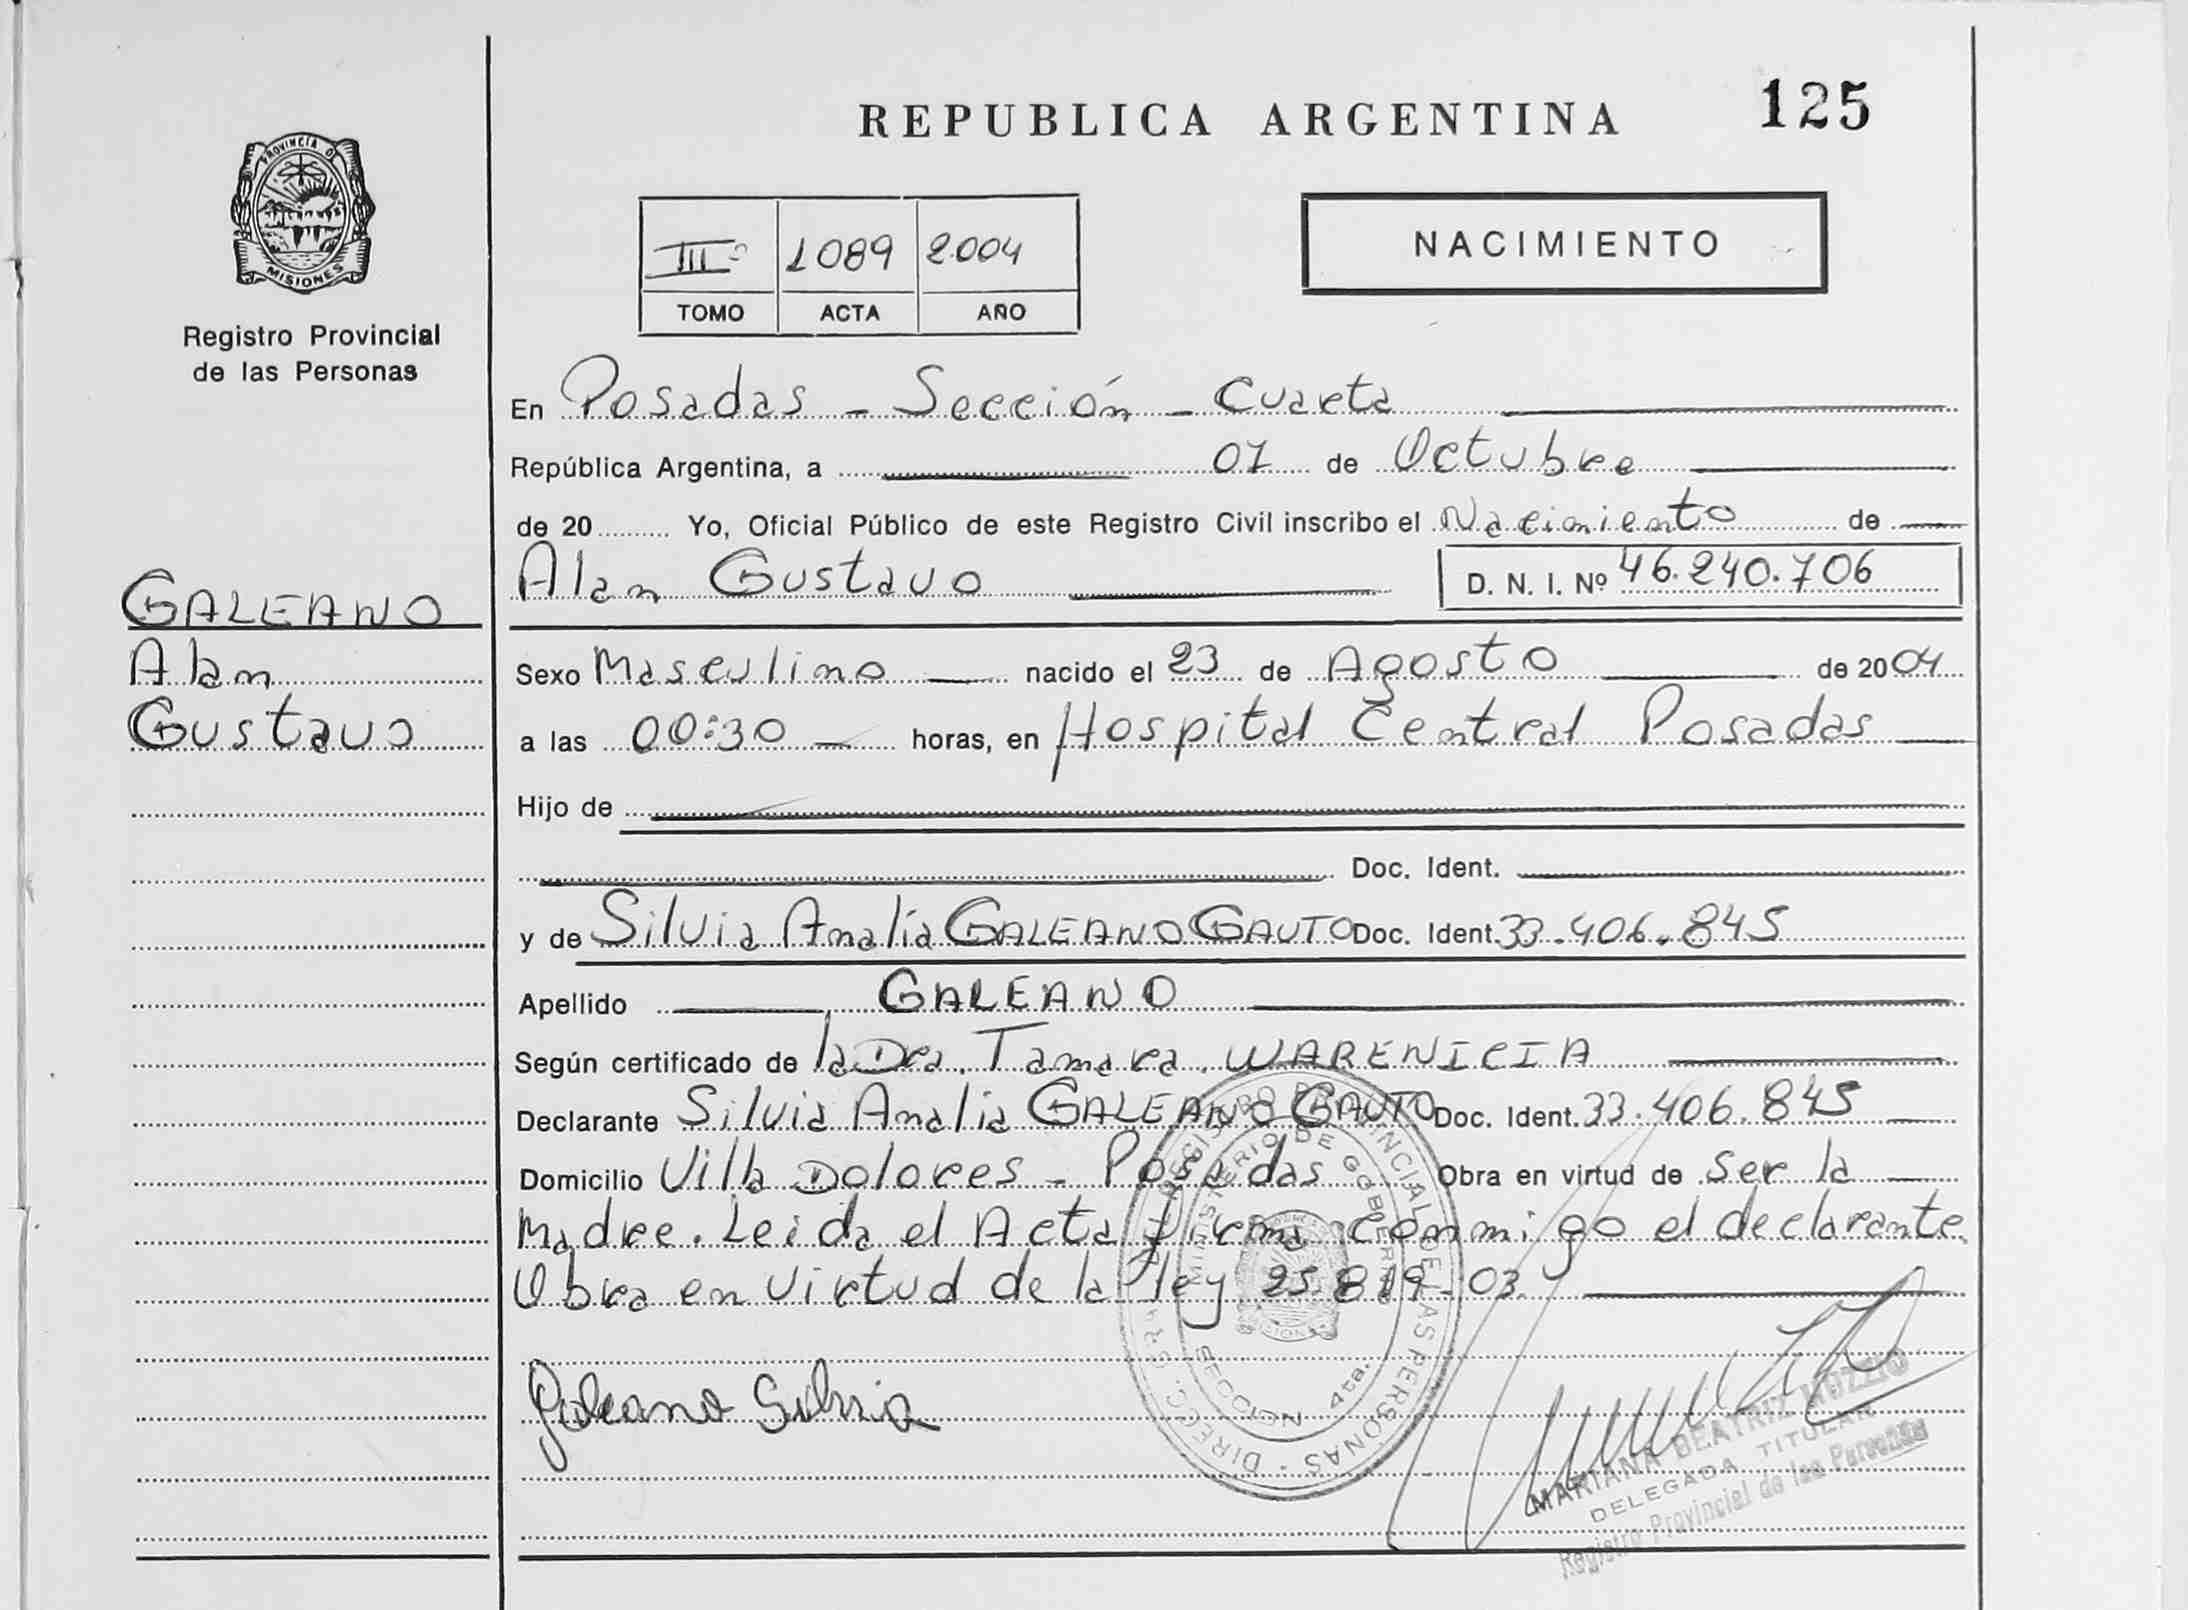 REPUBLICA ARGENTINA 125
PROVINCIA D
MISIONES
Registro Provincial
de las Personas
III° 1089 2.004
TOMO ACTA AÑO
NACIMIENTO
En Posadas - Sección - Cuarta
República Argentina, a 07 de Octubre
de 20 Yo, Oficial Público de este Registro Civil inscribo el Nacimiento de
Alan Gustavo D. N. I. Nº 46.240.706
GALEANO
Alan
Gustavo
Sexo Masculino nacido el 23 de Agosto de 2004
a las 00:30 horas, en Hospital Central Posadas
Hijo de
Doc. Ident.
y de Silvia Analía GALEANO GAUTO Doc. Ident. 33.406.845
Apellido GALEANO
Según certificado de la Dra. Tamara WARENICIA
Declarante Silvia Analia GALEANO GAUTO Doc. Ident. 33.406.845
Domicilio Villa Dolores - Posadas Obra en virtud de Ser la
Madre. Leida el Acta firma conmigo el declarante
Obra en virtud de la ley 25.819-03
Galeano Silvia
REGISTRO PROVINCIAL DE LAS PERSONAS - DIRECC. GRAL.
MINISTERIO DE GOBIERNO
SECCION 4ta.
MARIANA BEATRIZ MOZZIO
DELEGADA TITULAR
Registro Provincial de las Personas